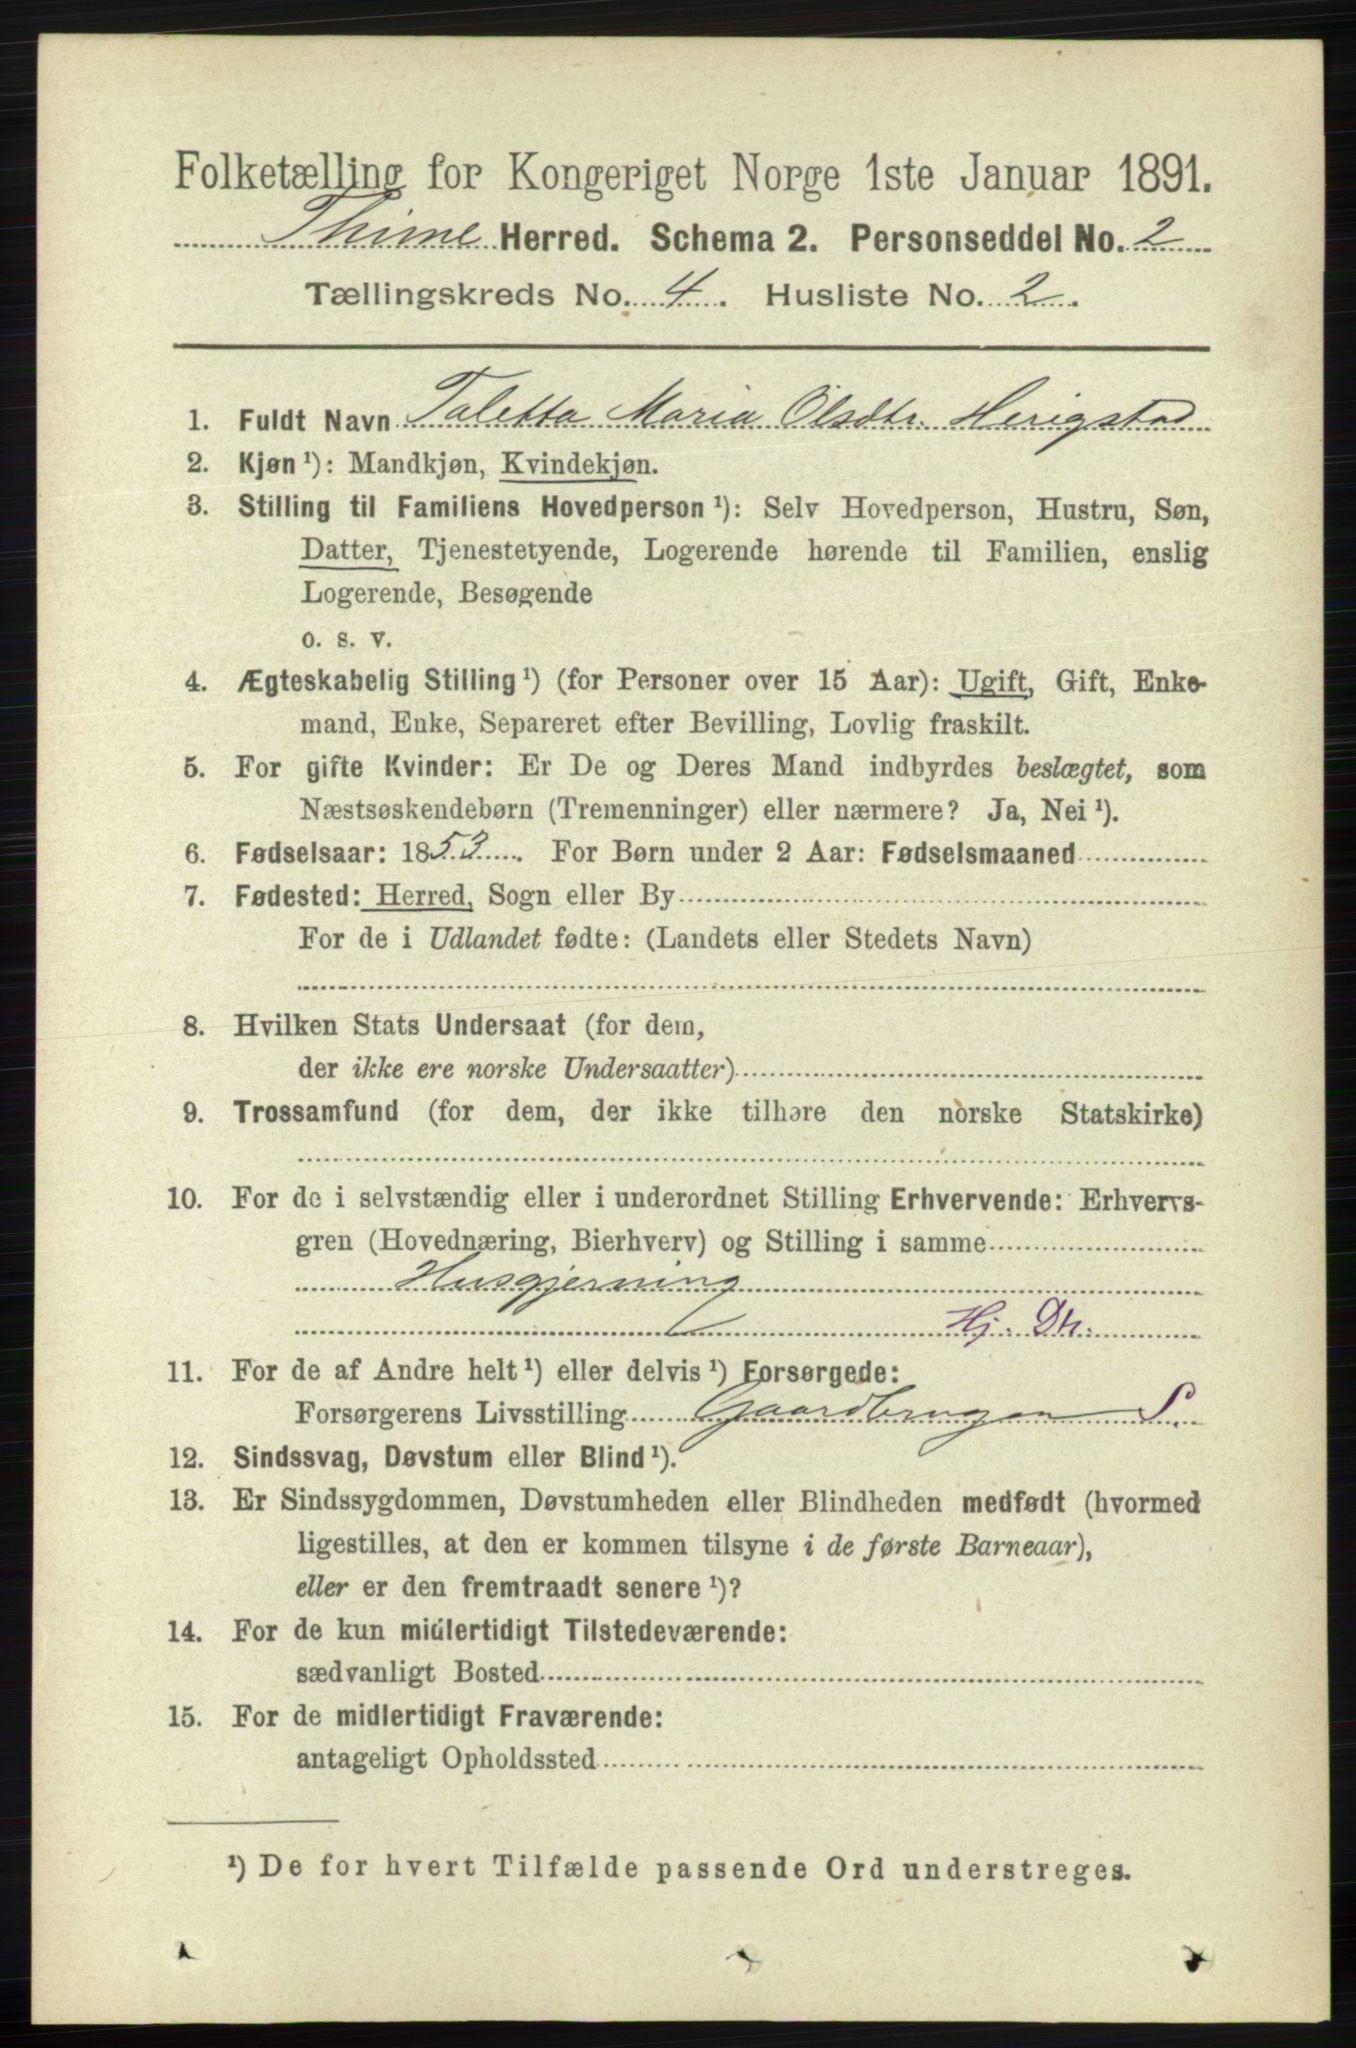 Folketælling for Kongeriget Norge 1ste Januar 1891.
Thime Herred. Schema 2. Personseddel No. 2
Tællingskreds No. 4. Husliste No. 2.
1. Fuldt Navn Taletta Maria Olsdtr. Herigstad
2. Kjøn ¹): Mandkjøn, Kvindekjøn.
3. Stilling til Familiens Hovedperson ¹): Selv Hovedperson, Hustru, Søn,
Datter, Tjenestetyende, Logerende hørende til Familien, enslig
Logerende, Besøgende
o. s. v.
4. Ægteskabelig Stilling ¹) (for Personer over 15 Aar): Ugift, Gift, Enke-
mand, Enke, Separeret efter Bevilling, Lovlig fraskilt.
5. For gifte Kvinder: Er De og Deres Mand indbyrdes beslægtet, som
Næstsøskendebørn (Tremenninger) eller nærmere? Ja, Nei ¹).
6. Fødselsaar: 1853. For Børn under 2 Aar: Fødselsmaaned
7. Fødested: Herred, Sogn eller By
For de i Udlandet fødte: (Landets eller Stedets Navn)
8. Hvilken Stats Undersaat (for dem,
der ikke ere norske Undersaatter)
9. Trossamfund (for dem, der ikke tilhøre den norske Statskirke)
10. For de i selvstændig eller i underordnet Stilling Erhvervende: Erhvervs-
gren (Hovednæring, Bierhverv) og Stilling i samme
Husgjerning
Hj. Dtr.
11. For de af Andre helt ¹) eller delvis ¹) Forsørgede:
Forsørgerens Livsstilling Gaardbruger S.
12. Sindssvag, Døvstum eller Blind ¹).
13. Er Sindssygdommen, Døvstumheden eller Blindheden medfødt (hvormed
ligestilles, at den er kommen tilsyne i de første Barneaar),
eller er den fremtraadt senere ¹)?
14. For de kun midlertidigt Tilstedeværende:
sædvanligt Bosted
15. For de midlertidigt Fraværende:
antageligt Opholdssted
¹) De for hvert Tilfælde passende Ord understreges.